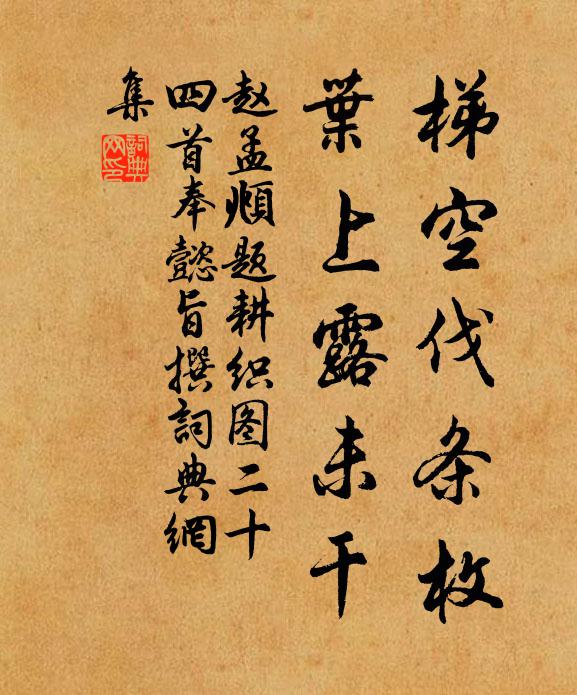 梯空伐条枚
葉上露未干
赵孟頫题耕织图二十
四首奉懿旨撰詞典網
集
詞典
网印